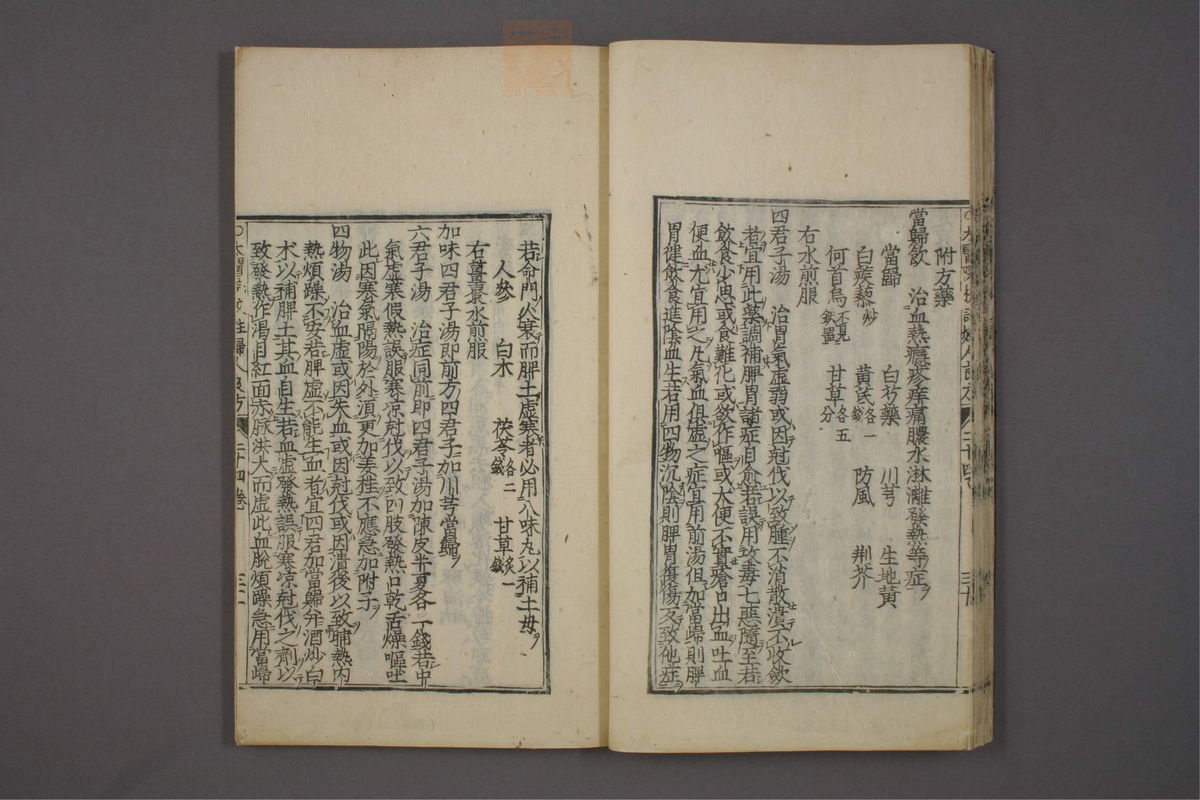 附方藥
當歸飲　治血熱癮疹痒痛膿水淋漓發熱等症
當歸　白芍藥　川芎　生地黃
白蒺藜炒　黃芪各一錢　防風　荆芥
何首烏不見鉄置　甘草各五分
右水煎服
四君子湯　治胃氣虛弱或因尅伐以致腫不消散潰不收歛
者宜用此藥調補脾胃諸症自愈若誤用攻毒七惡隨至若
飲食少思或食難化或欲作嘔或大便不實瘡口出血吐血
便血尤宜用之凡氣血俱虛之症宜用前湯但加當歸則脾
胃健飲食進陰血生若用四物沉陰則脾胃復傷反致他症
若命門火衰而脾土虛寒者必用八味丸以補土母
人參　白朮　茯苓各二錢　甘草炙一錢
右薑棗水煎服
加味四君子湯即前方四君子加川芎當歸
六君子湯　治症同前即四君子湯加陳皮半夏各一錢若中
氣虛寒假熱誤服寒凉尅伐以致四肢發熱口乾舌燥嘔吐
此因寒氣隔陽於外須更加姜桂不應急加附子
四物湯　治血虛或因失血或因尅伐或因潰後以致晡熱內
熱煩躁不安若脾虛不能生血者宜四君加當歸弁酒炒白
朮以補脾土其血自生若血虛發熱誤服寒凉尅伐之劑以
致發熱作渴目紅面赤脉洪大而虛此血脫煩躁急用當歸
婦人良方
二十四卷